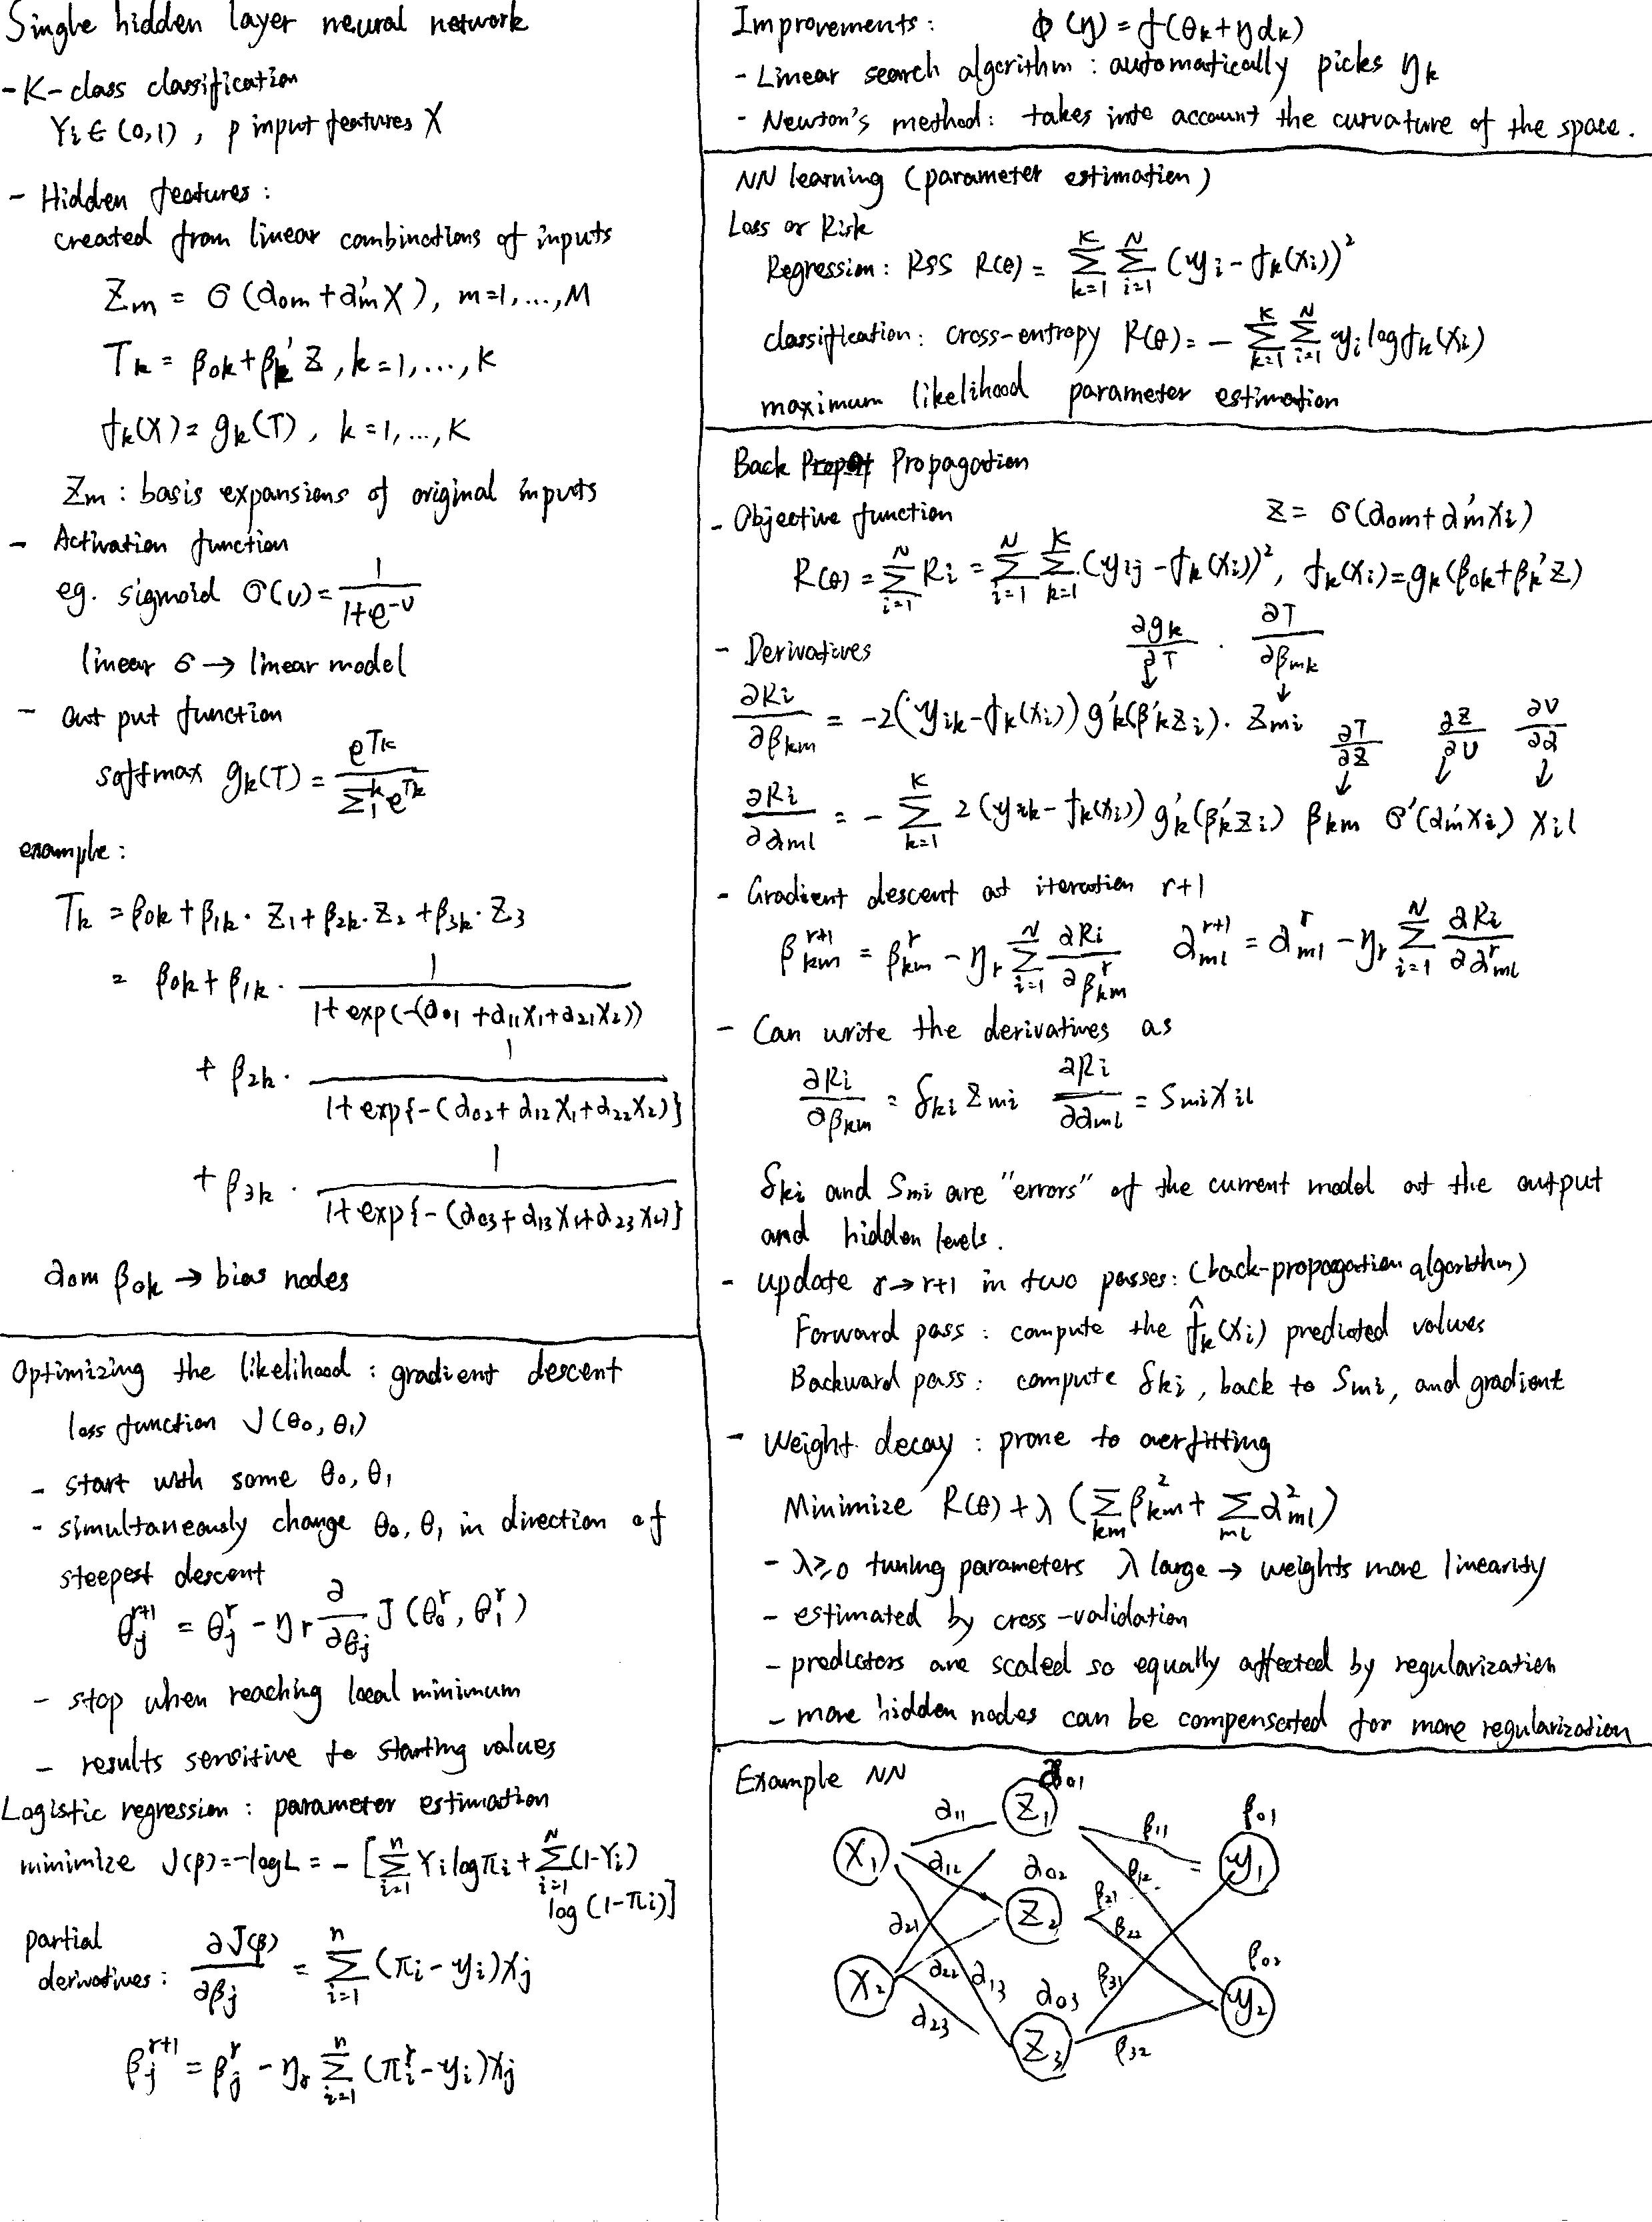 Single hidden layer neural network
- K-class classification
Yi ∈ (0,1), p input features X
- Hidden features:
created from linear combinations of inputs
Zm = σ(α0m + α'm X), m=1,...,M
Tk = β0k + βk' Z, k=1,...,K
fk(X) = gk(T), k=1,...,K
Zm: basis expansions of original inputs
- Activation function
eg. sigmoid σ(v) = 1/(1+e^-v)
linear σ → linear model
- out put function
softmax gk(T) = e^Tk / Σ_1^k e^Tk
example:
Tk = β0k + β1k · Z1 + β2k · Z2 + β3k · Z3
= β0k + β1k · 1/(1+exp(-(α01 + α11X1 + α21X2))
+ β2k · 1/(1+exp{-(α02 + α12X1 + α22X2)}
+ β3k · 1/(1+exp{-(α03 + α13X1 + α23X2)}
α0m β0k → bias nodes
Optimizing the likelihood: gradient descent
loss function J(θ0, θ1)
- start with some θ0, θ1
- simultaneously change θ0, θ1 in direction of
steepest descent
θj^r+1 = θj^r - ηr ∂/∂θj J(θ0^r, θ1^r)
- stop when reaching local minimum
- results sensitive to starting values
Logistic regression: parameter estimation
minimize J(β) = -logL = -[Σ_{i=1}^n Yi logπi + Σ_{i=1}^N (1-Yi)
log(1-πi)]
partial
derivatives: ∂J(β)/∂βj = Σ_{i=1}^n (πi - yi)xj
βj^r+1 = βj^r - ηr Σ_{i=1}^n (πi^r - yi)xj
Improvements: φ(η) = f(θk + ηdk)
- Linear search algorithm: automatically picks ηk
- Newton's method: takes into account the curvature of the space.
NN learning (parameter estimation)
Loss or Risk
Regression: RSS R(θ) = Σ_{k=1}^K Σ_{i=1}^N (yi - fk(xi))^2
classification: cross-entropy R(θ) = - Σ_{k=1}^K Σ_{i=1}^N yi log fk(xi)
maximum likelihood parameter estimation
Back Propagation
- Objective function Z = σ(α0m + α'm xi)
R(θ) = Σ_{i=1}^N Ri = Σ_{i=1}^N Σ_{k=1}^K (yij - fk(xi))^2, fk(xi) = gk(β0k + βk' Z)
- Derivatives ∂gk/∂T · ∂T/∂βmk
∂Ri/∂βkm = -2(yik - fk(xi)) g'k(β'k zi) · Zmi ∂T/∂Z ∂Z/∂v ∂v/∂α
∂Ri/∂αml = - Σ_{k=1}^K 2(yik - fk(xi)) g'k(β'k zi) βkm σ'(α'm xi) Xil
- Gradient descent at iteration r+1
βkm^r+1 = βkm^r - ηr Σ_{i=1}^N ∂Ri/∂βkm^r αml^r+1 = αml^r - ηr Σ_{i=1}^N ∂Ri/∂αml^r
- Can write the derivatives as
∂Ri/∂βkm = δki Zmi ∂Ri/∂αml = Smi Xil
δki and Smi are "errors" of the current model at the output
and hidden levels.
- update r → r+1 in two passes: (back-propagation algorithm)
Forward pass: compute the f̂k(xi) predicted values
Backward pass: compute δki, back to Smi, and gradient
- Weight decay: prone to overfitting
Minimize R(θ) + λ(Σ_km βkm^2 + Σ_ml αml^2)
- λ≥0 tuning parameters λ large → weights more linearity
- estimated by cross-validation
- predictors are scaled so equally affected by regularization
- more hidden nodes can be compensated for more regularization
Example NN
α01
Z1
α11
β11
β01
X1
α12
β12
y1
α02
Z2
β21
β22
α21
α22
α13
β31
β02
X2
α03
y2
α23
Z3
β32